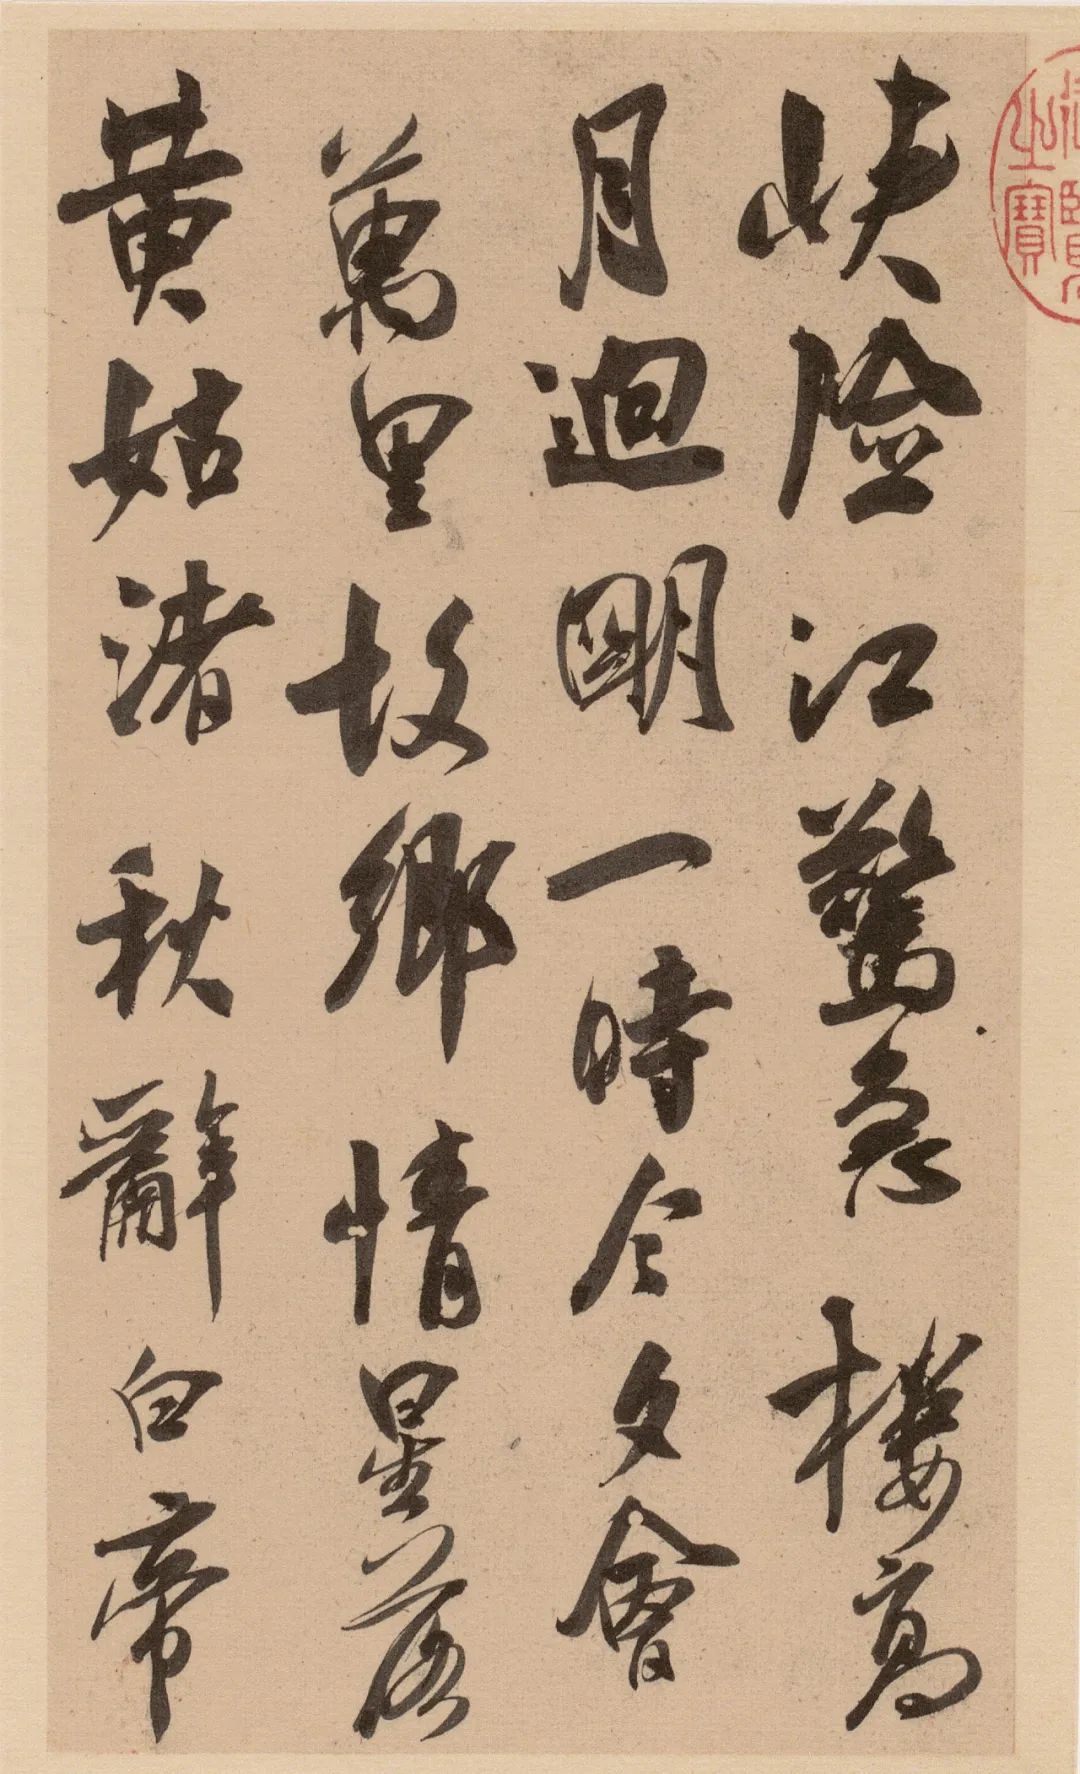 峽險江驚急樓高
月迥明一時今夕會
萬里故鄉情星落
黄姑渚秋辭白帝
之寶